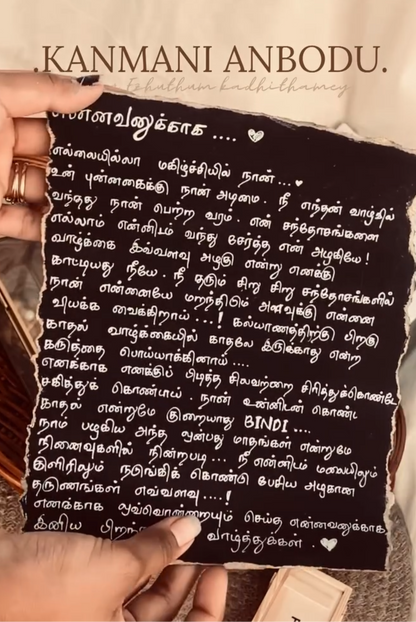 .KANMANI ANBODU.
kadhithamey
என்னவனுக்காக ....
எல்லையில்லா மகிழ்ச்சியில் நான்...
உன் புன்னகைக்கு நான் அடிமை. நீ எந்தன் வாழ்வில்
வந்தது நான் பெற்ற வரம். என் சந்தோசங்களை
எல்லாம் என்னிடம் வந்து சேர்த்த என் அழகியே!
வாழ்க்கை இவ்வளவு அழகு என்று எனக்கு
காட்டியது நீயே. நீ தரும் சிறு சிறு சந்தோசங்களில்
நான் என்னையே மறந்திடும் அளவுக்கு என்னை
வியக்க வைக்கிறாய்...! கல்யாணத்திற்கு பிறகு
காதல் வாழ்க்கையில் காதலே இருக்காது என்ற
கருத்தை பொய்யாக்கினாய்....
எனக்காக எனக்குப் பிடித்த சிலவற்றை சிரித்துக்கொண்டே
சகித்துக் கொண்டாய். நான் உன்னிடன் கொண்ட
காதல் என்றுமே குறையாது BINDI ....
நாம் பழகிய அந்த ஒன்பது மாதங்கள் என்றுமே
நினைவுகளில் நின்றபடி... நீ என்னிடம் மலையிலும்
குளிரிலும் நடுங்கிக் கொண்டு பேசிய அழகான
தருணங்கள் எவ்வளவு....!
எனக்காக ஒவ்வொன்றையும் செய்த என்னவனுக்காக
இனிய வாழ்த்துக்கள்.